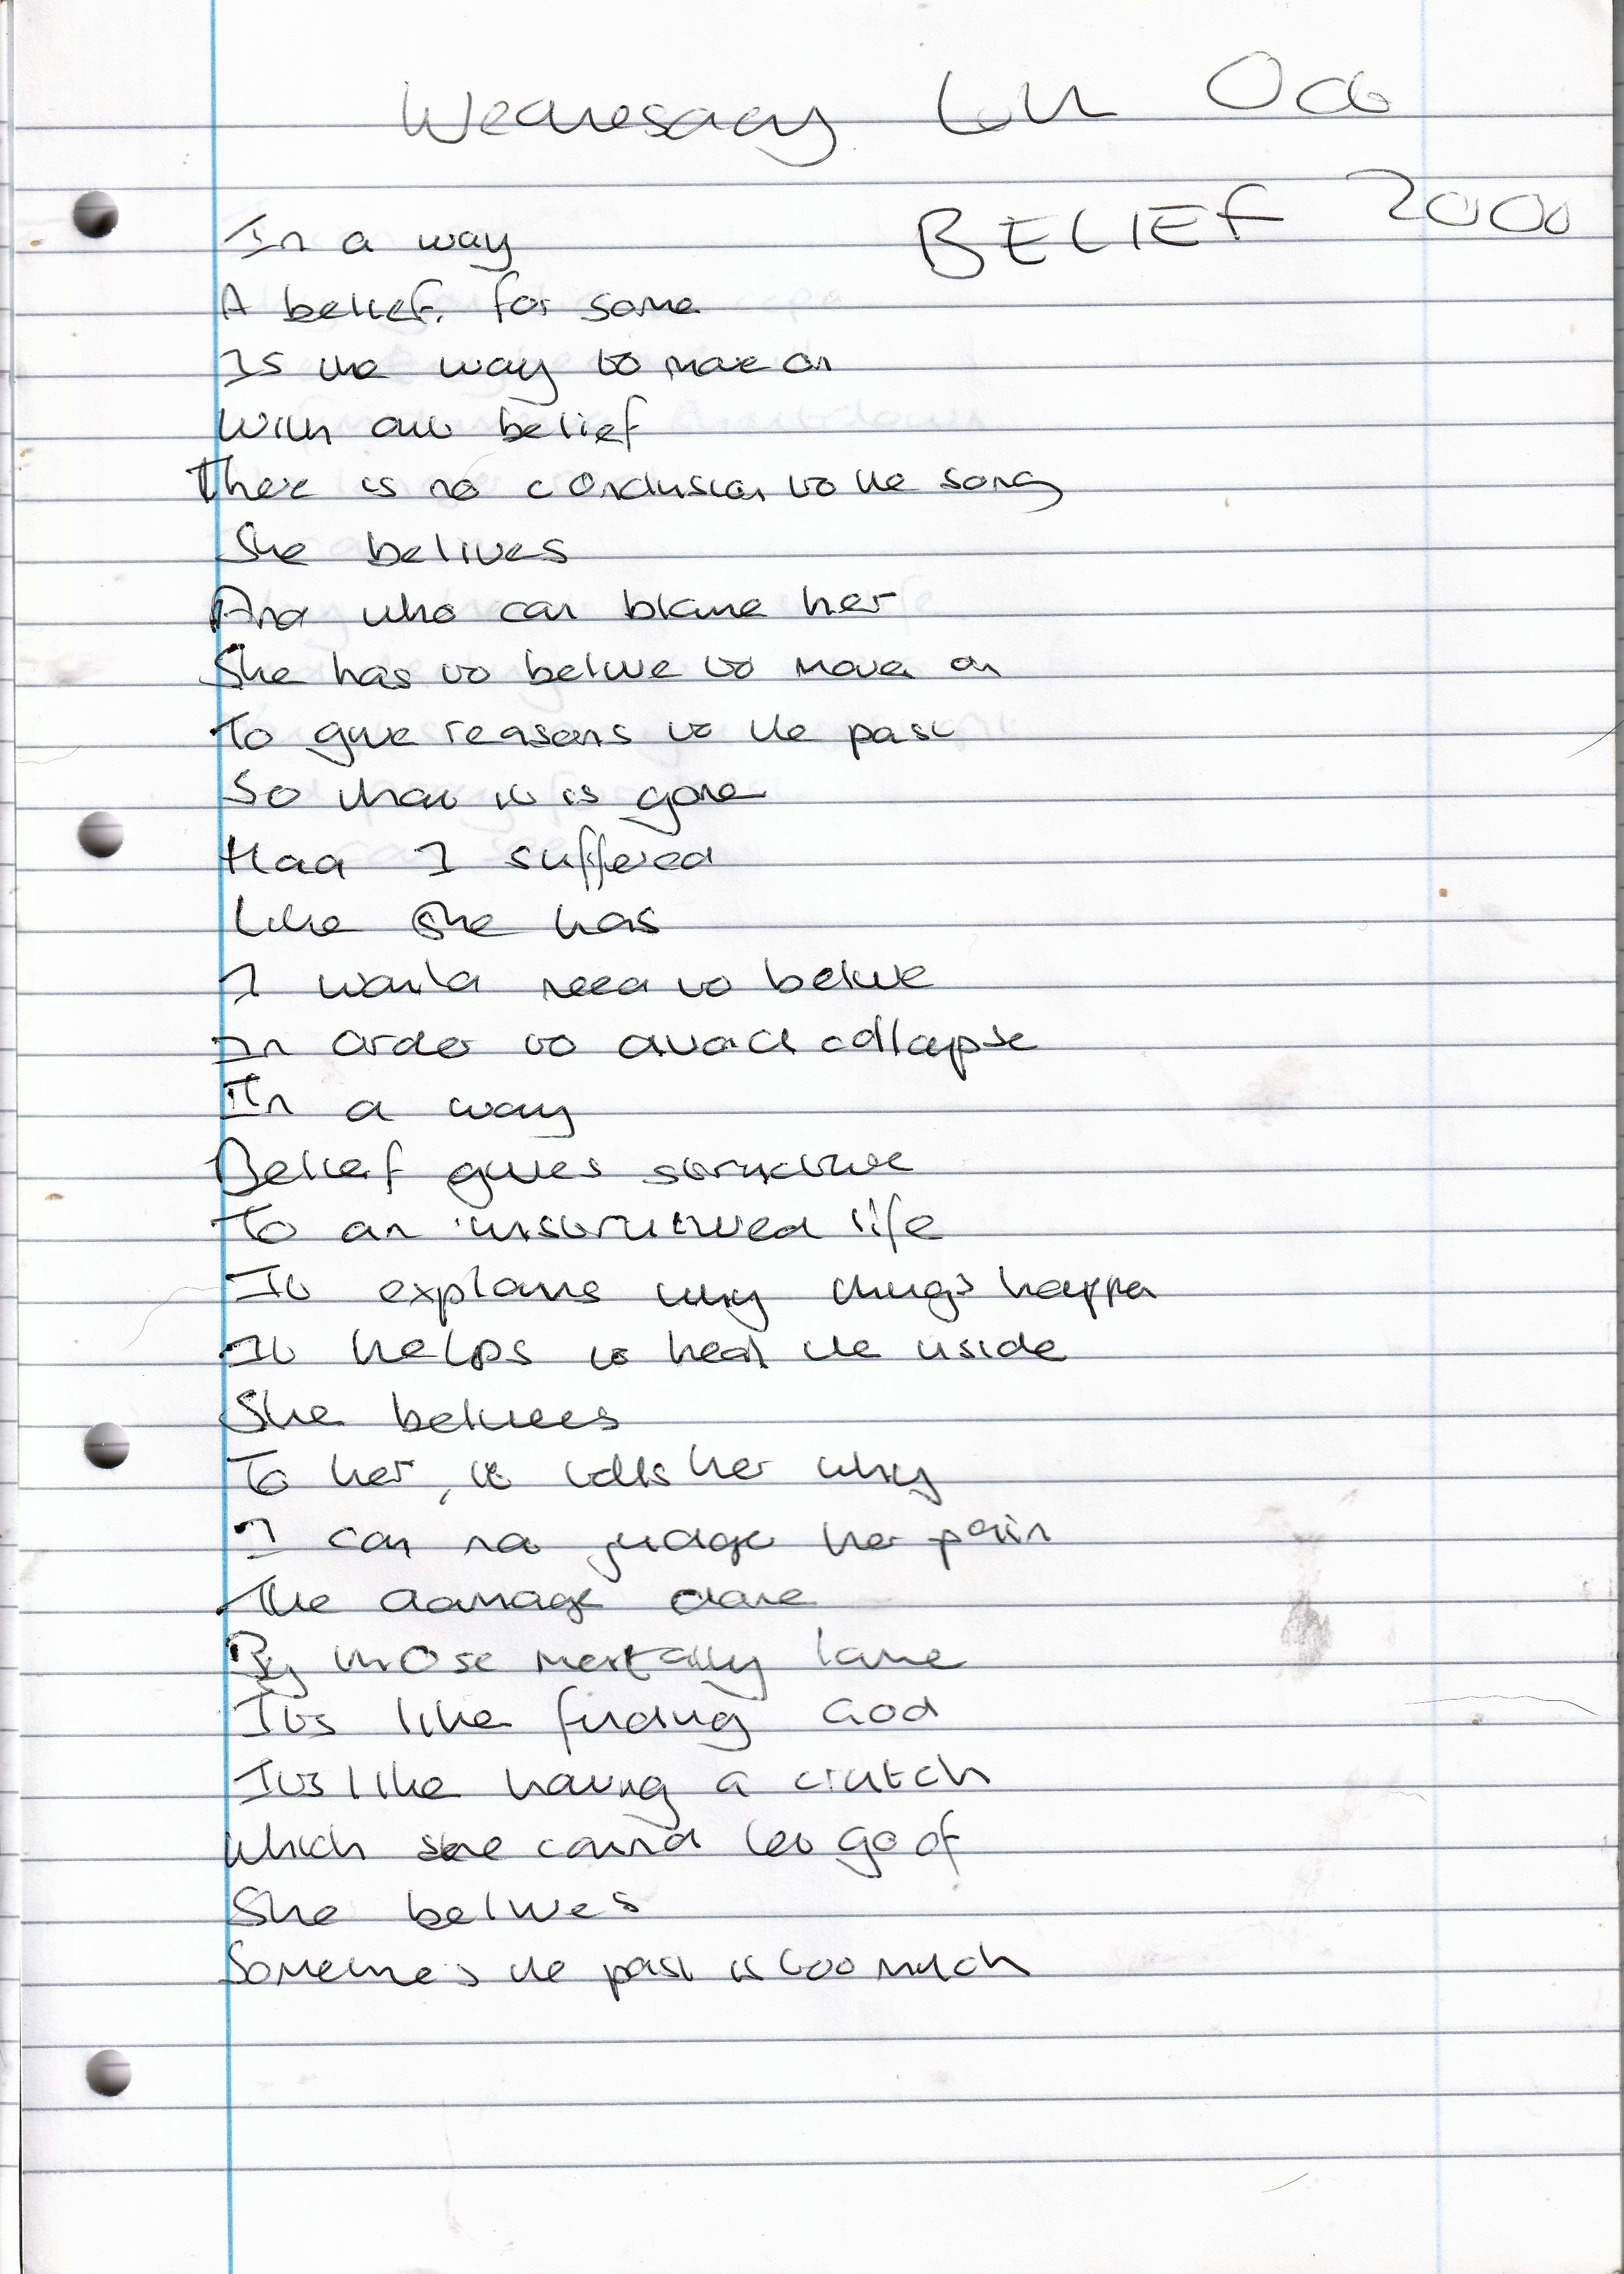 Wednesday 6th Oct
BELIEF 2000
In a way
A belief, for some
Is the way to move on
With out belief
There is no conclusion to the song
She belives
And who can blame her
She has to belive to move on
To give reasons to the past
So that it is gone
Had I suffered
Like she has
I would need to belive
In order to avoid collapse
In a way
Belief gives structure
To an unstrutured life
It explains why things happen
It helps to heal the inside
She belivees
To her, it tells her why
I can not judge her pain
The damage done
By those mentally lame
Its like finding God
Its like having a crutch
Which she cannot let go of
She belives
Sometimes the past is too much